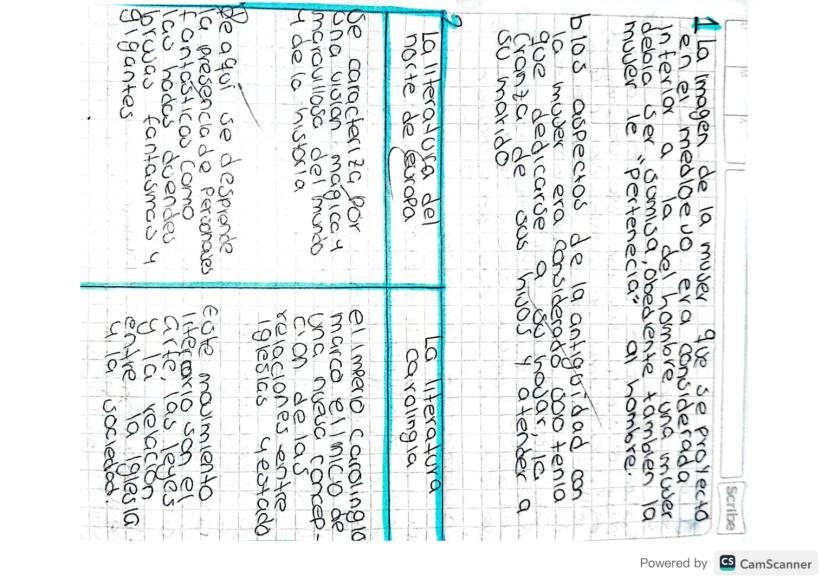 scribe
1 La imagen de la mujer que se proyecta
en el medioevo era considerada
inferior a la del hombre una mujer
debia ser sumisa, obediente tambien la
mujer le "pertenecia" al hombre.
blos aspectos de la antiguidad con
la mujer era considerado solo tenia
que dedicarse a su hogar, la
crianza de sus hijos y atender a
su marido
2
La literatura del
norte de europa
Se caracteriza por
una vision magica y
maravillosa del mundo
y de la historia
De aqui se desprende
la presencia de personajes
fantasticos como
las hadas duendes
brujas fantasmas y
gigantes
La literatura
carolingia
el imperio carolingio
marco el inicio de
una nueva concep-
cion de las
relaciones entre
iglesias y estado
Este movimiento
literario son el
arte, las leyes
y la relacion
entre la iglesia
y la sociedad.
Powered by CS CamScanner